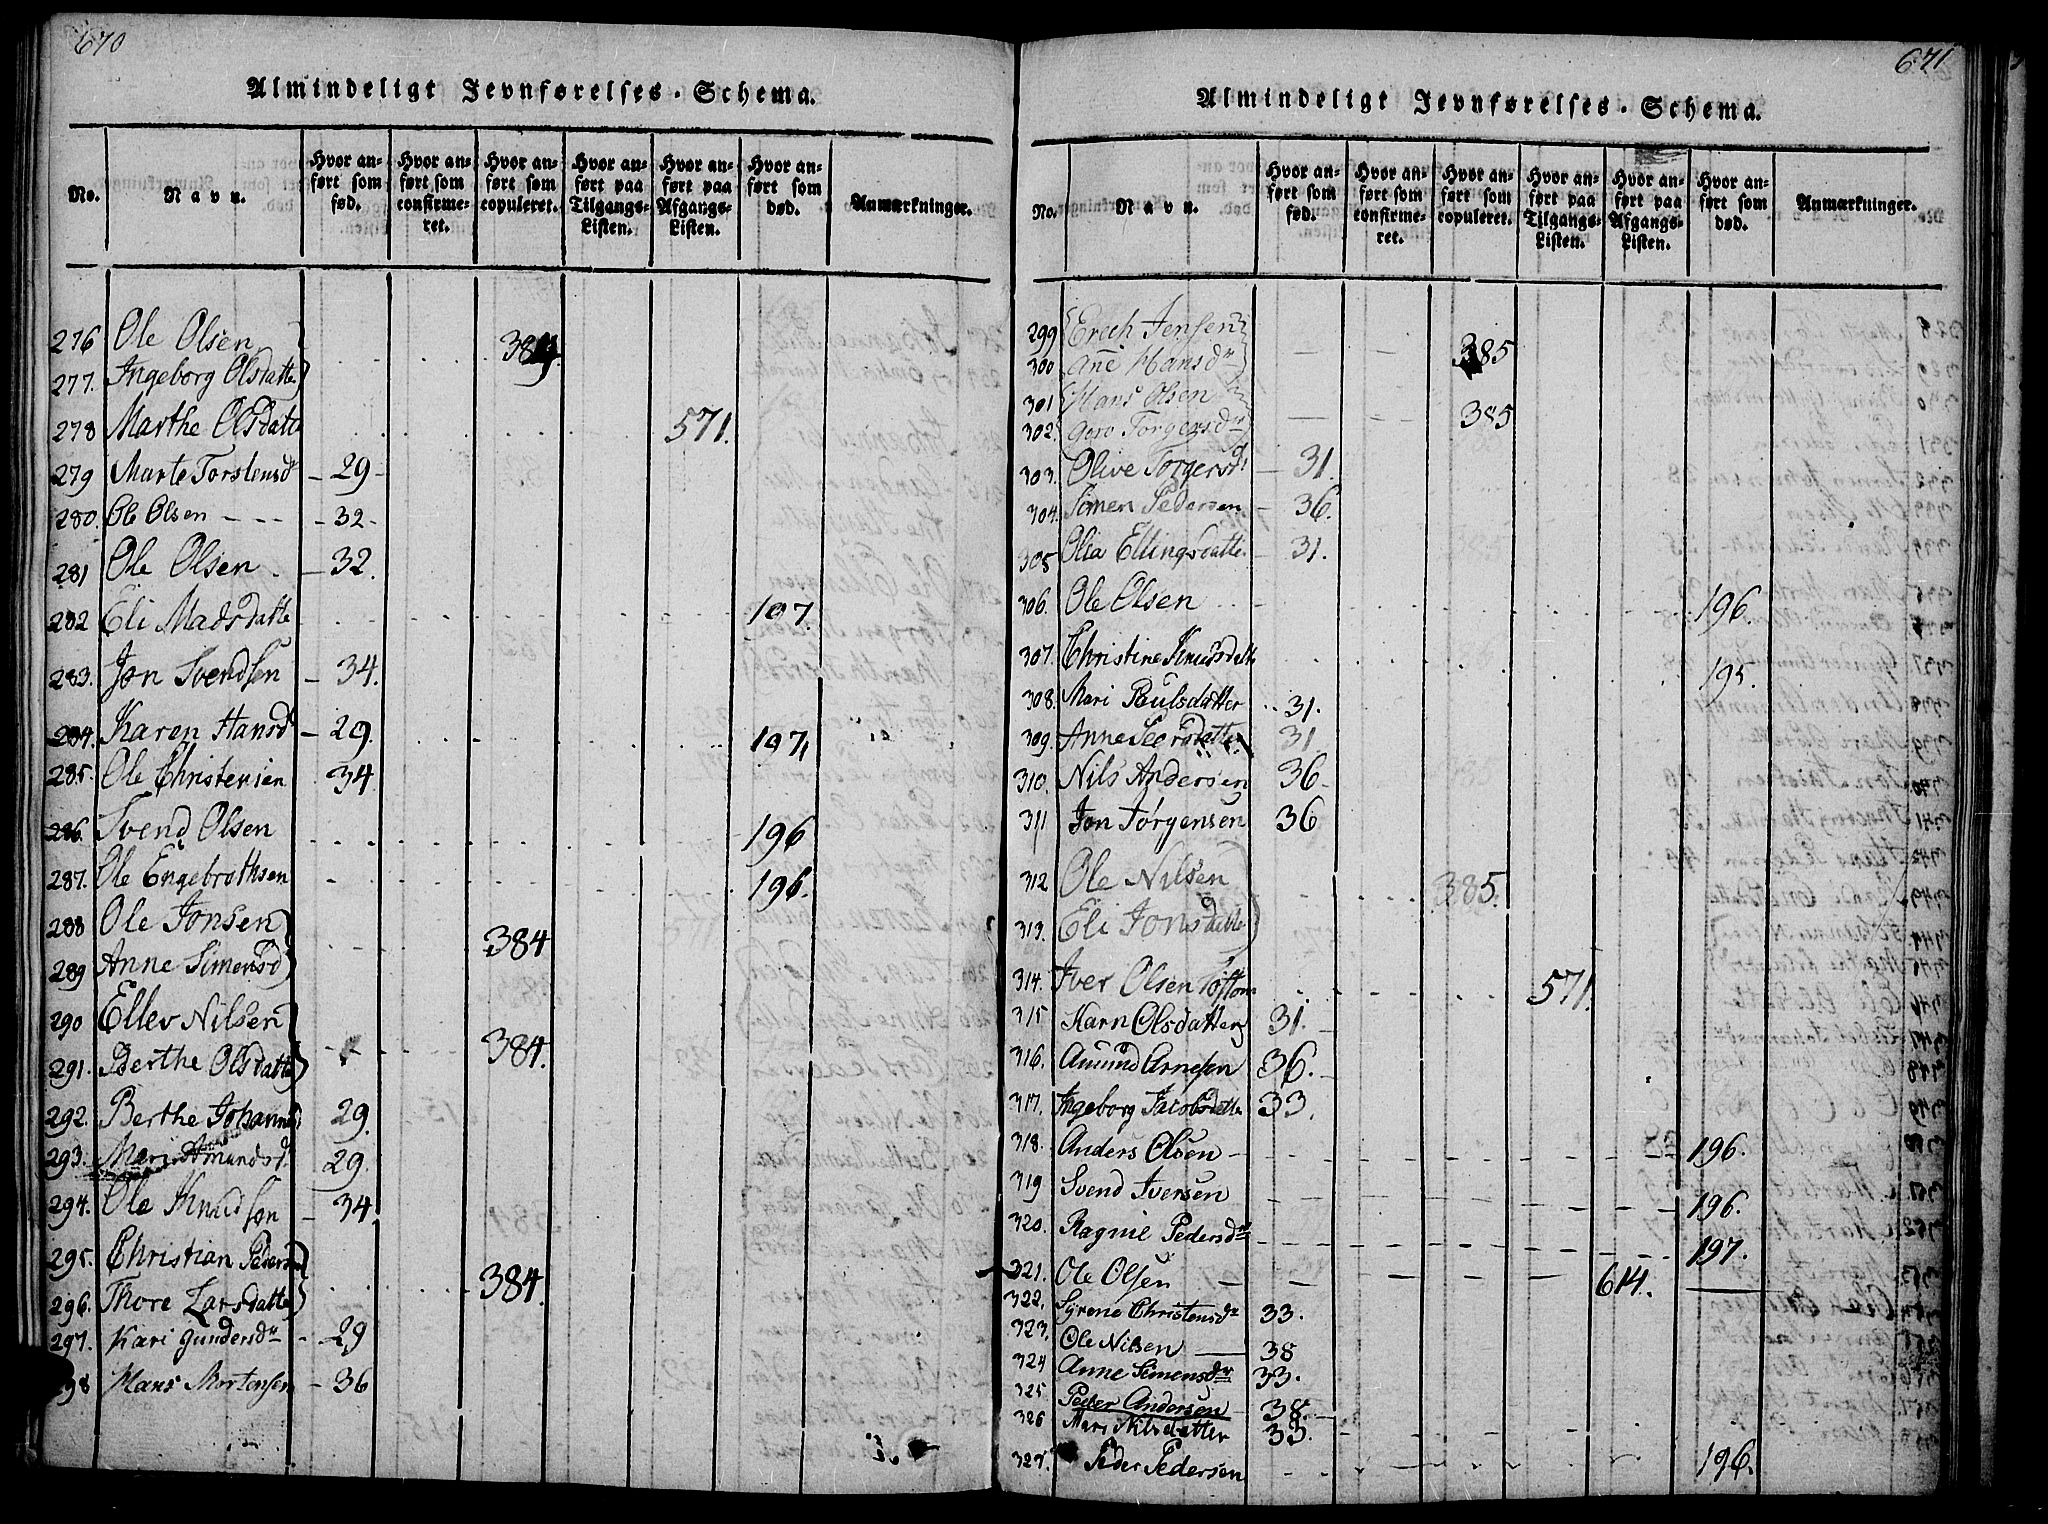 670
Almindeligt Jevnførelses-Schema.
No. Navn. Hvor anført som fød. Hvor anført som confirmeret. Hvor anført som copuleret. Hvor anført paa Tilgangs-Listen. Hvor anført paa Afgangs-Listen. Hvor anført som død. Anmærkninger.
276 Ole Olsen 384
277. Ingeborg Olsdatte
278 Marthe Olsdatte 571.
279 Marte Torstensd - 29 -
280. Ole Olsen - - - - 32 -
281 Ole Olsen - 32.
282 Eli Madsdatte 197.
283. Jon Svendsen - 34.
284. Karen Hansd - 29. 197,
285. Ole Christensen 34
286. Svend Olsen 196
287. Ole Engebrethsen 196.
288 Ole Jonsen 384
289 Anne Simensd
290 Ellev Nilsen 384.
291. Berthe Olsdatte
292. Berthe Johanne 29.
293. Mari Amundsd. 29.
294. Ole Knudsen - 34
295. Christian Peders 384.
296. Thore Larsdatte
297. Kari Gundersdr - 29
298 Hans Mortensen - 36
671
Almindeligt Jevnførelses-Schema.
No. Navn. Hvor anført som fød. Hvor anført som confirmeret. Hvor anført som copuleret. Hvor anført paa Tilgangs-Listen. Hvor anført paa Afgangs-Listen. Hvor anført som død. Anmærkninger.
299 Erech Jensen 385
300 Añe Hansdr
301 Hans Olsen 385
302. Goro Torgersdr
303. Olive Torgersd - 31.
304. Simen Pedersen - 36.
305 Olia Ellingsdatte - 31.
306. Ole Olsen 196.
307. Christine Knudsdatte 195.
308. Mari Poulsdatter 31.
309. Anne Peersdatter 31.
310. Nils Andersen 36.
311 Jon Jørgensen 36
312 Ole Nilsen 385.
313. Eli Jonsdatte
314. Iver Olsen Toftom 571.
315 Karn Olsdatter 31.
316. Amund Arnesen 36.
317. Ingeborg Jacobsdatte 33.
318. Anders Olsen - 196.
319 Svend Iversen 196.
320. Ragnil Pedersdr 197.
321. Ole Olsen 614.
322. Syrene Christensdr 33.
323. Ole Nilsen 38
324 Anne Simensdr 33.
325 Peder Andersen 38.
326 Mari Nilsdatter 33.
327. Peder Pedersen 196.